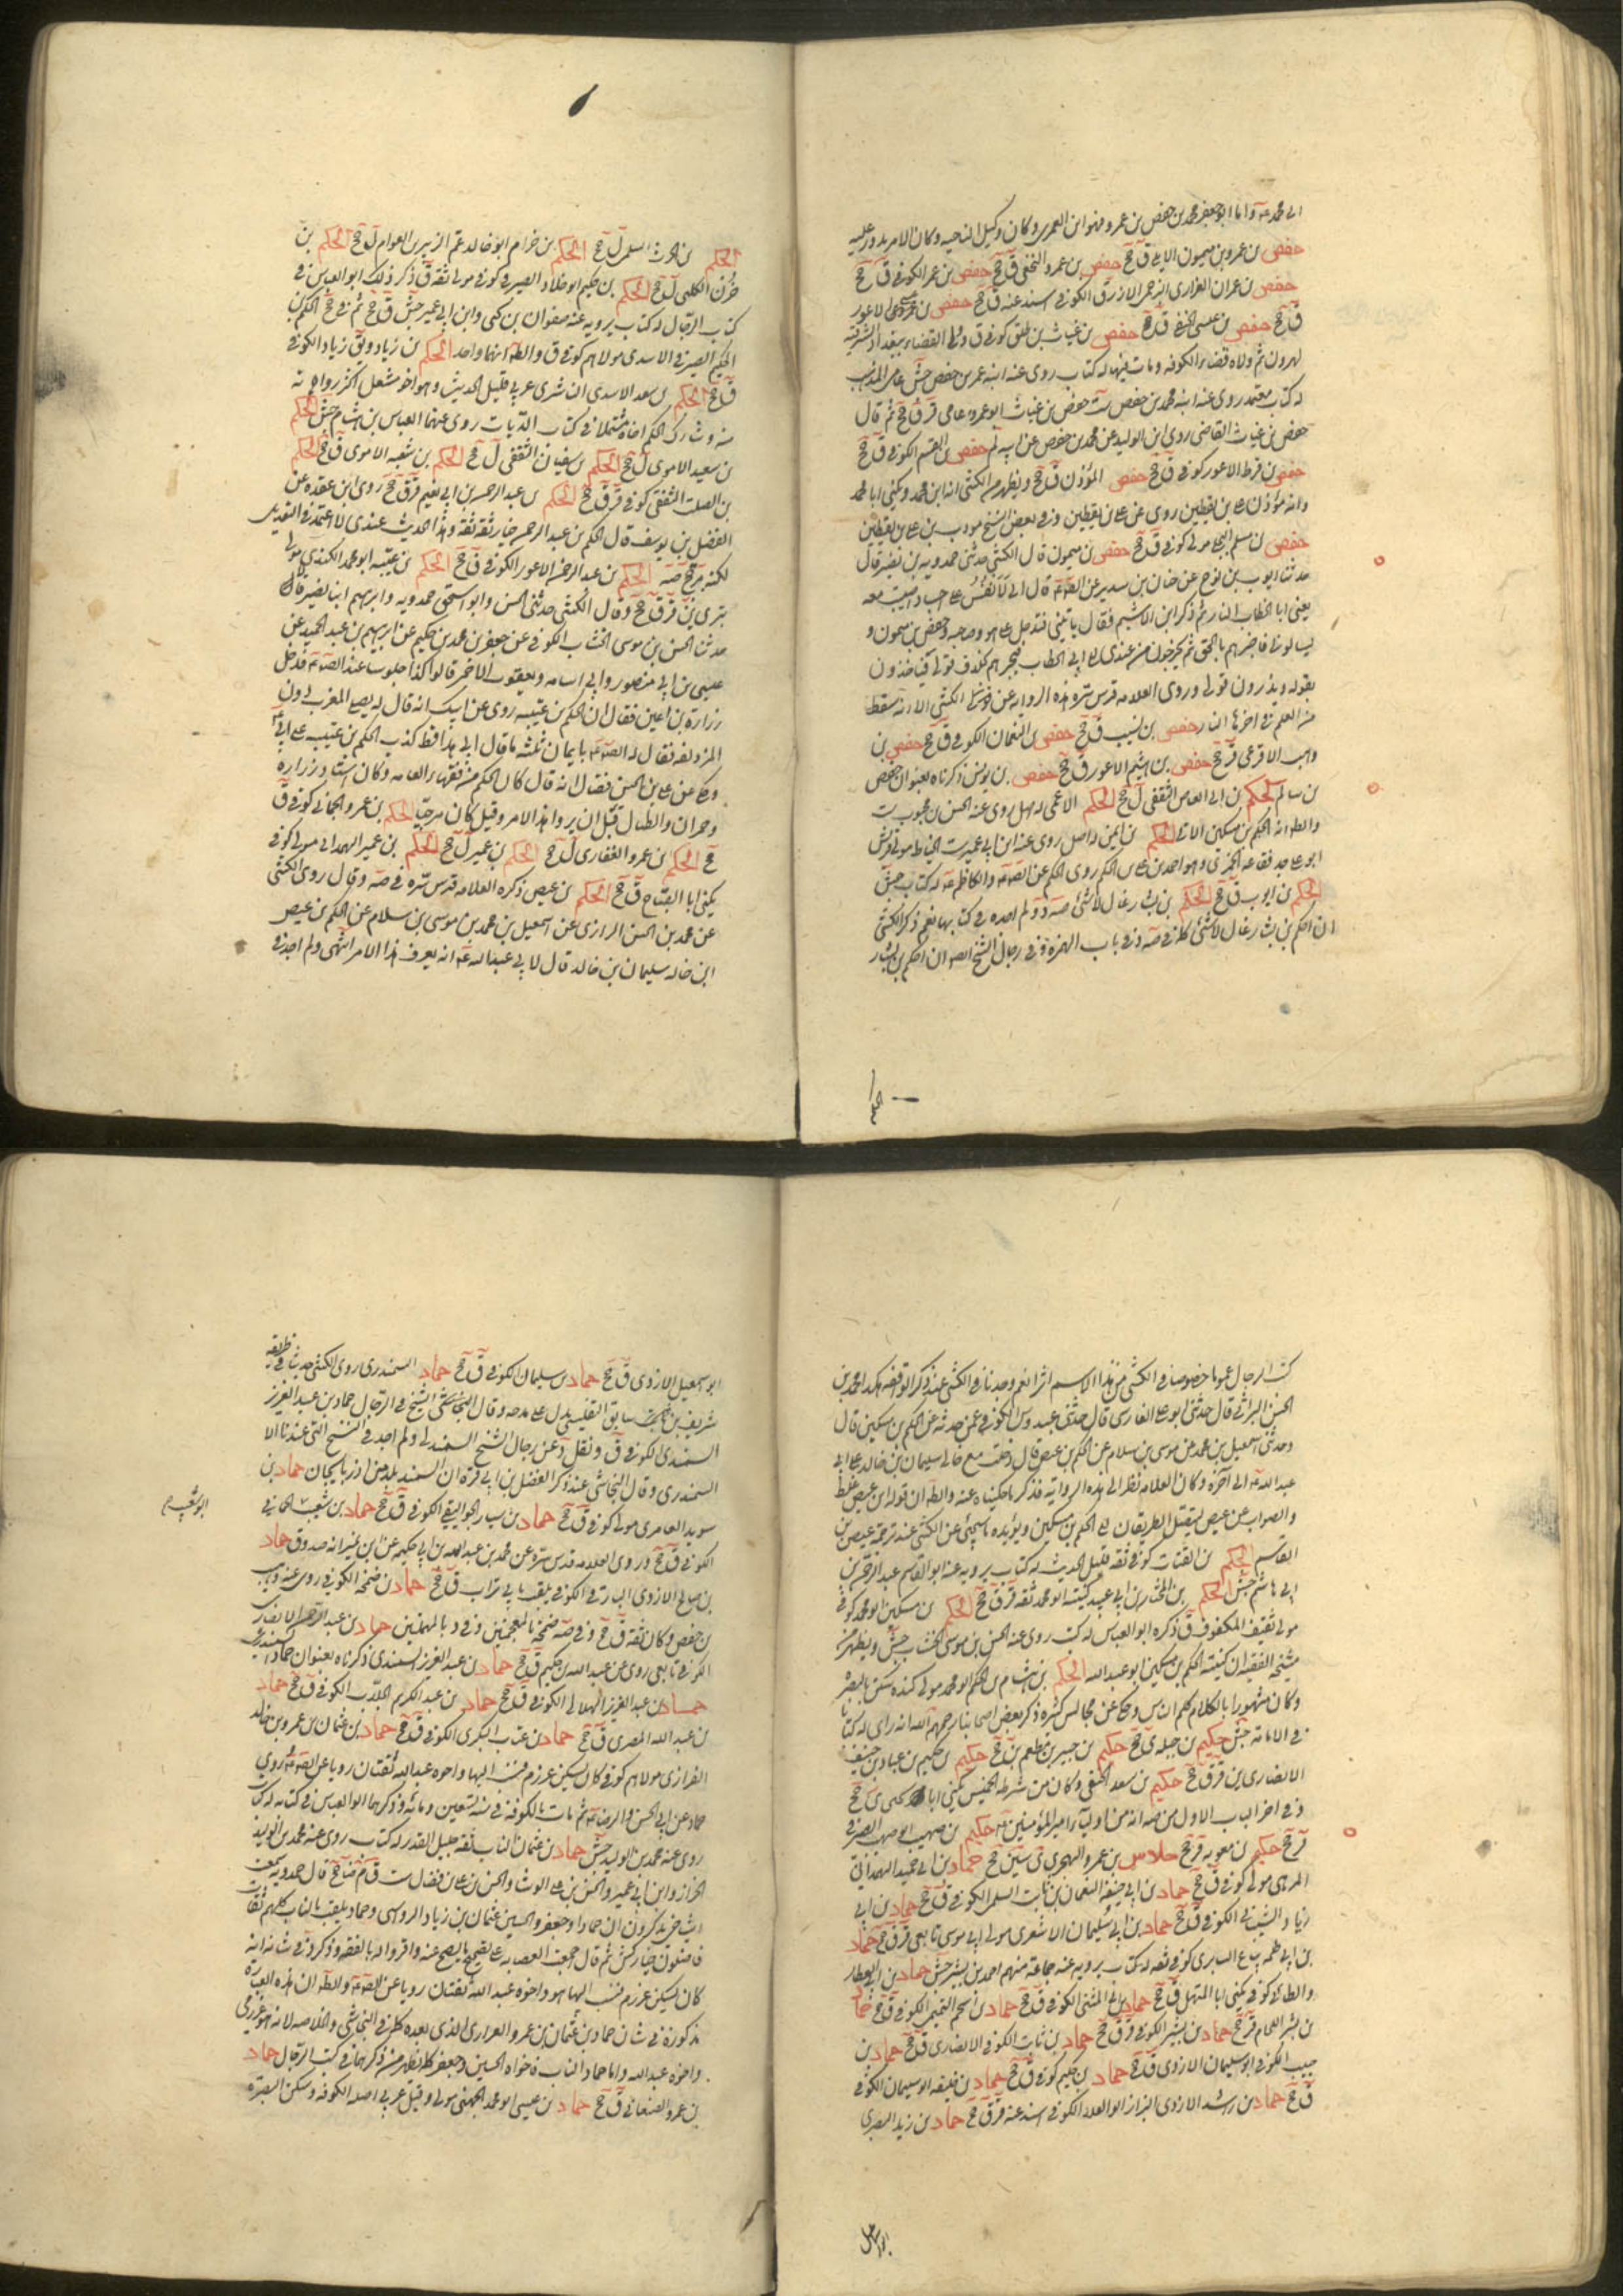 الى محمد عـ واما ابو جعفر محمد بن حفص بن عمرو فهو ابن العمرى وكان وكيل الناحيه وكان الامر يدور عليه
حفص بن عمرو بن ميمون الابلى ق جخ حفص بن عمرو النخعى ق جخ حفص بن عمر الكوفى ق جخ
حفص بن عمران الفزارى البرجمى الازرق الكوفى اسند عنه ق جخ حفص بن الاعور
ق جخ حفص بن عيسى الحنفى ق جخ حفص بن غياث بن طلق كوفى ق ولى القضاء ببغداد الشرقيه
لهرون ثم ولاه قضاء الكوفه ومات فيها له كتاب روى عنه ابنه عمر بن حفص جش عامى المذهب
له كتاب معتمد روى عنه ابنه محمد بن حفص ست حفص بن غياث ابو عمرو عامى قر ق جخ ثم قال
حفص بن غياث القاضى روى ابن الوليد عن محمد بن حفص عن ابيه لم حفص بن القسم الكوفى ق جخ
حفص بن قرط الاعور كوفى ق جخ حفص المؤذن ق جخ ويظهر من الكشى انه ابن محمد ويكنى ابا محمد
وانه مؤذن على بن يقطين روى عن على بن يقطين وفى بعض النسخ مودب بن على بن يقطين
حفص بن مسلم البجلى مولى كوفى ق جخ حفص بن ميمون قال الكشى حدثنى حمدويه بن نصير قال
حدثنا ايوب بن نوح عن حنان بن سدير عن الصـ عـ قال انى لانفس على اجساد اصيبت معه
يعنى ابا الخطاب النار ثم ذكر ابن الاشيم فقال ياتينى فتدخل على هو وصاحبه وحفص بن ميمون و
يسالونى فاخبرهم بالحق ثم يخرجون من عندى الى ابى الخطاب فيخبرهم بخلاف قولى فياخذون
بقوله ويذرون قولى وروى العلامه قدس سره هذه الروايه عن الكشى الا انه سقط
من العلم فى اخرها النار حفص بن نسيب ق جخ حفص بن النعمان الكوفى ق جخ حفص بن
وهب الافرعى ق جخ حفص بن الهيثم الاعور ق جخ حفص بن يونس ذكرناه بعنوان حفص
بن سالم الحكم بن ابى العاص الثقفى ل جخ الحكم الاعمى له اصل روى عنه الحسن بن محبوب ست
والظ انه الحكم بن مسكين الاتى الحكم بن ايمن له اصل روى عنه ابن ابى عمير ست الحناط مولى قريش
ابو على جد فقاعه الخمرى وهو احمد بن على بن الحكم روى الحكم عن الصـ عـ والكاظم عـ له كتاب جش
الحكم بن ايوب ق جخ الحكم بن بشار غال لا شئ صه ود ولم اجده فى كتابهما نعم ذكر الكشى
ان احكم بن بشار غال لا شئ كما فى صه وفى باب الهمزة وفى رجال الشيخ ايضا ان احكم بن بشار
الحكم
الحكم بن الحرث السلمى ل جخ الحكم بن حزام ابو خالد عم الزبير بن العوام ل جخ الحكم بن
حزن الكلفى ل جخ الحكم بن حكيم ابو خلاد الصيرفى كوفى مولى ثقه ق ذكر ذلك ابو العباس فى
كتاب الرجال له كتاب يرويه عنه صفوان بن يحيى وابن ابى عمير جش ق جخ ثم فى جخ الحكم بن
الحكيم الصيرفى الاسدى مولاهم كوفى ق والظ انهما واحد الحكم بن زياد ويق زياد الكوفى
ق جخ الحكم بن سعد الاسدى الناشرى عربى قليل الحديث وهو اخو مشمعل اكثر رواية
منه وشارك الحكم اخاه مشمعلا فى كتاب الديات روى عنهما العباس بن هشام جش الحكم
بن سعيد الاموى ل جخ الحكم بن سفيان الثقفى ل جخ الحكم بن شعبه الاموى ق جخ الحكم
بن الصلت الثقفى كوفى قر ق جخ الحكم بن عبد الرحمن بن ابى نعيم قر ق جخ روى ابن عقده عن
الفضل بن يوسف قال الحكم بن عبد الرحمن خيار ثقة ثقة وهذا الحديث عندى لا اعتمد فى التعديل
لكنه مرجح صه الحكم بن عبد الرحمن الاعور الكوفى ق جخ الحكم بن عتيبه ابو محمد الكندى مولى
بترى ين قر ق جخ وقال الكشى حدثنى ابو الحسن وابو اسحق حمدويه وابرهيم ابنا نصير قال
حدثنا الحسن بن موسى الخشاب الكوفى عن جعفر بن محمد بن حكيم عن ابرهيم بن عبد الحميد عن
عيسى بن ابى منصور وابى اسامه ويعقوب الاحمر قالوا كنا جلوسا عند الصـ عـ فدخل
زرارة بن اعين فقال ان الحكم بن عتيبه روى عن ابيك انه قال له يصلى المغرب دون
المزدلفه فقال له الصـ عـ بايمان ثلثه ما قال ابى هذا قط كذب الحكم بن عتيبه على ابى عـ
وحكى عن على بن الحسن فضال انه قال كان الحكم من فقهاء العامه وكان استاد زراره
وحمران والطيار قبل ان يروا هذا الامر وقيل كان مرجيا الحكم بن عمرو الجمانى كوفى ق
جخ الحكم بن عمرو الغفارى ل جخ الحكم بن عمير ل جخ الحكم بن عمير الهمدانى مولى كوفى
يكنى ابا الصباح ق جخ الحكم بن عيص ذكره العلامه قدس سره فى صه وقال روى الكشى
عن محمد بن الحسن الرازى عن اسمعيل بن محمد بن موسى بن سلام عن الحكم بن عيص
ابن خاله سليمان بن خالد قال لابى عبد الله عـ انه يعرف هذا الامر انتهى ولم اجد فى
كتب الرجال عموما خصوصا فى الكشى من هذا الاسم اثرا نعم وجدنا فى الكشى عند ذكر الواقفه هكذا محمد بن
الحسن البراثى قال حدثنى ابو على الفارسى قال حدثنى عبدوس الكوفى عمن حدثه عن الحكم بن مسكين قال
وحدثنى اسمعيل بن محمد عن موسى بن سلام عن الحكم بن عيص قال دخلت مع خالى سليمان بن خالد على ابى
عبد الله عـ الى آخره وكان العلامه نظر الى هذه الرواية فذكر ما حكيناه عنه والظ ان قوله ابن عيص غلط
والصواب عن عيص ليقبل الطريقان الى الحكم بن مسكين ويؤيده ما سيجئ عن الكشى عند ترجمة عيص بن
القاسم الحكم بن القتات كوفى ثقه قليل الحديث له كتاب يرويه عنه ابو القاسم عبد الرحمن بن
ابى هاشم جش الحكم بن المختار بن ابى عبيد كنيته ابو محمد ثقه قر ق جخ الحكم بن مسكين ابو محمد كوفى
مولى ثقيف المكفوف ق ذكره ابو العباس له كتب روى عنه الحسن بن موسى الخشاب جش ويظهر من
مشيخه الفقيه ان كنيته الحكم بن مسكين ابو عبد الله الحكم بن هشام بن الحكم ابو محمد مولى كنده سكن بالبصره
وكان مشهورا بالكلام كلم الناس وحكى عن مجالس كثيره ذكر بعض اصحابنا رحمهم الله انه راى له كتابا
فى الامامه جش حكيم بن جبله ى جخ حكيم بن جبير بن مطعم ين جخ حكيم بن حكيم بن عباد بن حنيف
الانصارى ين قر ق جخ حكيم بن سعد الحنفى وكان من شرطه الخميس يكنى ابا يحيى ى جخ
وفى اخر الباب الاول من صه انه من اولياء امير المؤمنين عـ حكيم بن صهيب ابو صهيب الصيرفى
قر جخ حكيم بن معويه قر جخ حلاس بن عمرو الهجرى ى سين جخ حماد بن ابى حميد الهمدانى
المرهبى مولى كوفى ق جخ حماد بن ابى حنيفه النعمان بن ثابت السلمى الكوفى ق جخ حماد بن ابى
زياد الشيبانى الكوفى ق جخ حماد بن ابى سليمان الاشعرى مولى ابى موسى تابعى قر ق جخ حماد
بن ابى طلحه بياع السابرى كوفى ثقه له كتاب يرويه عنه جماعة منهم احمد بن بشير جش حماد بن ابى العطارد
الطائى كوفى يكنى ابا المستهل ق جخ حماد بن المثنى الكوفى ق جخ حماد بن الحكم التميمى الكوفى ق جخ حماد
بن بشر اللحام قر جخ حماد بن بشير الكوفى قر ق جخ حماد بن ثابت الكوفى الانصارى ق جخ حماد بن
حبيب الكوفى ابو سليمان الازدى ق جخ حماد بن حكيم كوفى ق جخ حماد بن خليفه ابو سليمان الكوفى
ق جخ حماد بن راشد الازدى البزاز ابو العلاء الكوفى اسند عنه قر ق جخ حماد بن زيد البصرى
ابو اسمعيل
ابو اسمعيل الازدى ق جخ حماد بن سليمان الكوفى ق جخ حماد السمندرى روى الكشى حديثا فى طريقه
شريف بن سابق التفليسى يدل على مدحه وقال النجاشى الشيخ فى الرجال حماد بن عبد العزيز
السمندى الكوفى ق ونقل د عن رجال الشيخ السمندلى ولم اجد فى النسخ التى عندنا الا
السمندرى وقال النجاشى عند ذكر الفضل بن ابى قرة ان السمند بلد من اذربايجان حماد بن
سويد العامرى مولى كوفى ق جخ حماد بن سيار الجواليقى الكوفى ق جخ حماد بن شعيب الحمانى
ابو شعيب
الكوفى ق جخ وروى العلامه قدس سره عن محمد بن عبد الله بن ابى حكيمه عن ابن نمير انه صدوق حماد
بن صالح الازدى البارقى الكوفى يلقب بابى تراب ق جخ حماد بن ضمخه الكوفى روى عنه وهيب
بن حفص وكان ثقه ق جخ وفى صه ضمخه بالمعجمتين وفى د بالمهملتين حماد بن عبد الرحمن الانصارى
الكوفى تابعى روى عن عبد الله بن حكيم ق جخ حماد بن عبد العزيز السمندى ذكرناه بعنوان حماد السمندرى
حماد بن عبد العزيز الهلالى الكوفى ق جخ حماد بن عبد الكريم الجلاب الكوفى ق جخ حماد
بن عبد الله المصرى ق جخ حماد بن عتاب البكرى الكوفى ق جخ حماد بن عثمان بن عمرو بن خالد
الفزارى مولاهم كوفى كان يسكن عرزم فنسب اليها واخوه عبد الله ثقتان رويا عن الصـ عـ وروى
حماد عن ابى الحسن والرضا عـ ثم مات بالكوفه فى سنه تسعين ومائه ذكرهما ابو العباس فى كتابه له كتاب
روى عنه محمد بن الوليد جش حماد بن عثمان الناب ثقه جليل القدر له كتاب روى عنه محمد بن الوليد
الخزاز وابن ابى عمير والحسن بن على الوشاء والحسن بن على بن فضال ست ق م ضا جخ قال حمدويه سمعت
اشياخى يذكرون ان حمادا وجعفر والحسين بن عثمان بن زياد الرواسى وحماد يلقب بالناب كلهم ثقات
فاضلون خيار كش ثم قال اجمعت العصابه على تصحيح ما يصح عنه واقروا له بالفقه وذكر د فى شانه انه
كان يسكن عرزم فنسب اليها هو واخوه عبد الله ثقتان رويا عن الصـ عـ والظ ان هذه العبارة
مذكورة فى شان حماد بن عثمان بن عمرو الفزارى الذى بعده كما فى النجاشى والخلاصه لانه هو عرزمى
واخوه عبد الله واما حماد الناب فاخواه الحسين وجعفر كما يظهر من ذكرهما فى كتب الرجال حماد
بن عمرو الصنعانى ق جخ حماد بن عيسى ابو محمد الجهنى مولى وقيل عربى اصله الكوفه وسكن البصرة